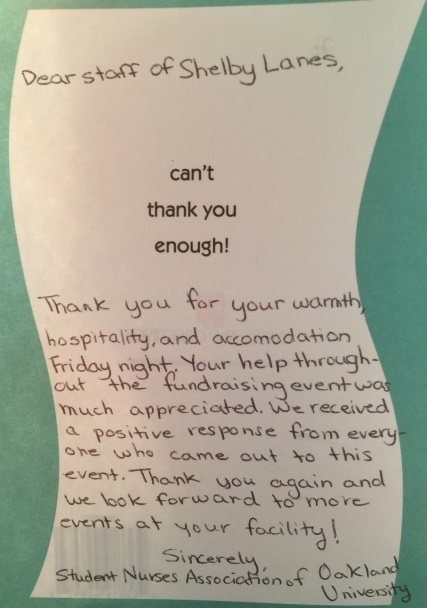 Dear staff of Shelby Lanes,
can't
thank you
enough!
Thank you for your warmth,
hospitality, and accomodation
Friday night. Your help through-
out the fundraising event was
much appreciated. We received
a positive response from every-
one who came out to this
event. Thank you again and
we look forward to more
events at your facility!
Sincerely,
Student Nurses Association of Oakland
University